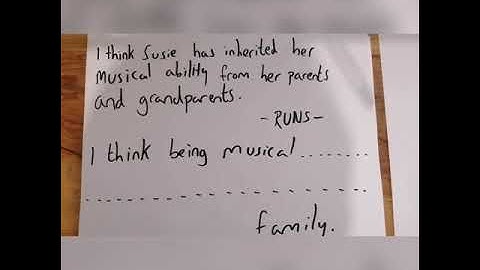 I think Susie has inherited her
musical ability from her parents
and grandparents.
-RUNS-
I think being musical........
..........................
family.